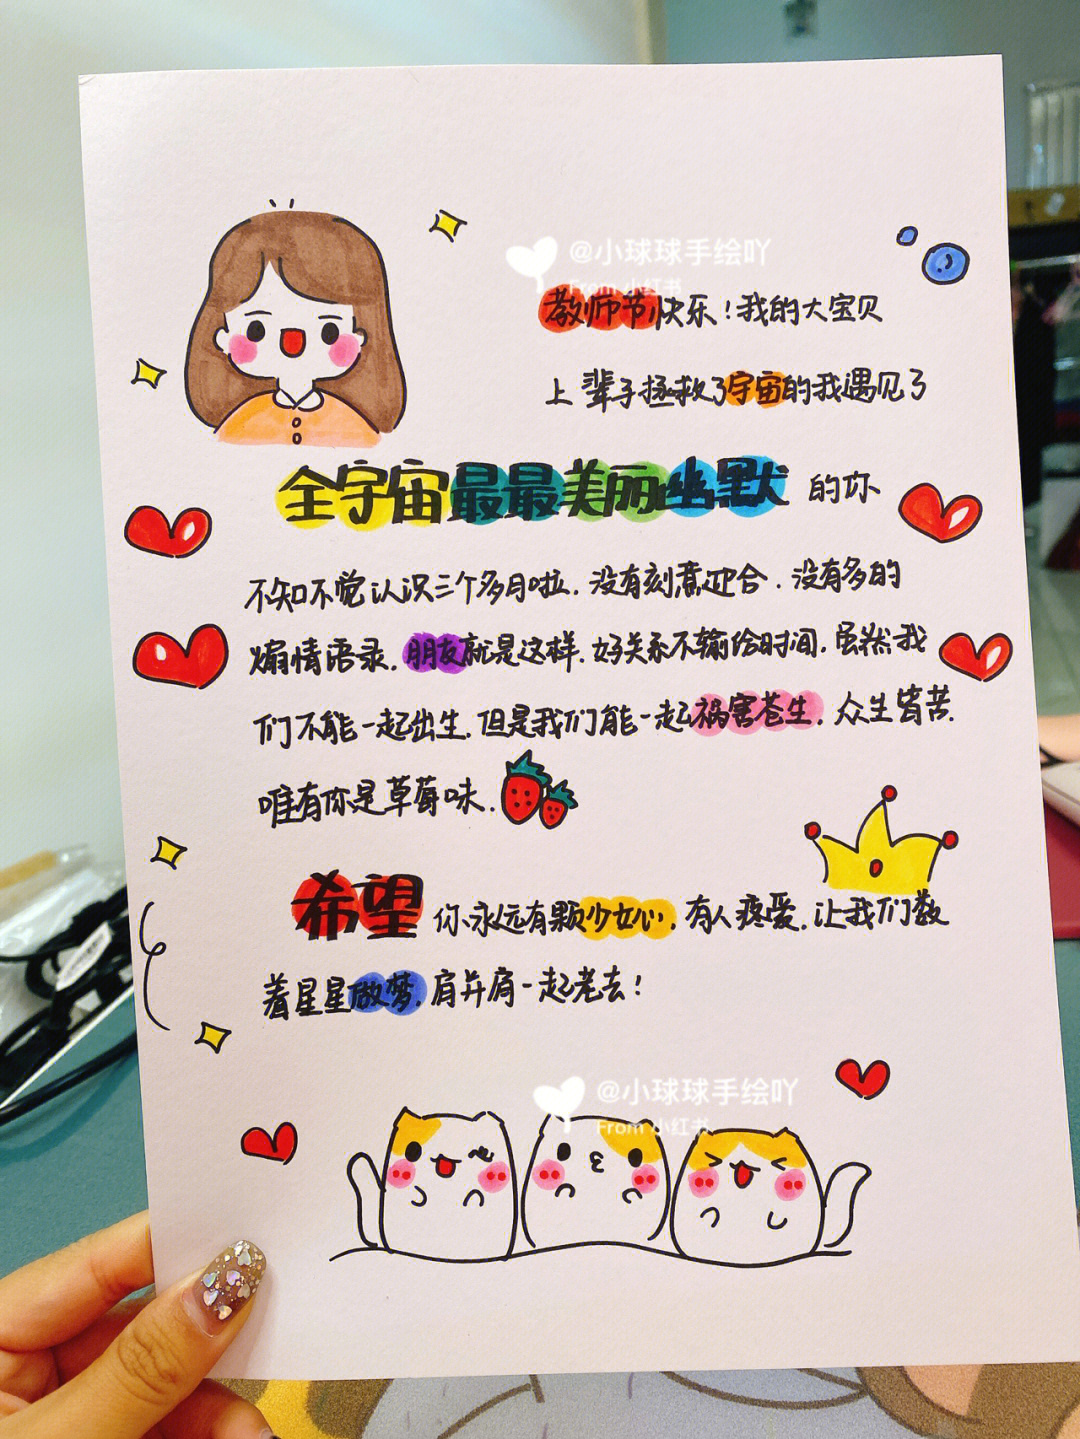 @小球球手绘吖
From 小红书
教师节快乐！我的大宝贝
上辈子拯救了宇宙的我遇见了
全宇宙最最美丽幽默的你
不知不觉认识三个多月啦.没有刻意迎合.没有多的
煽情语录.朋友就是这样.好关系不输给时间.虽然我
们不能一起出生.但是我们能一起祸害苍生.众生皆苦.
唯有你是草莓味.
希望你永远有颗少女心,有人疼爱.让我们数
着星星做梦.肩并肩一起老去！
@小球球手绘吖
From 小红书